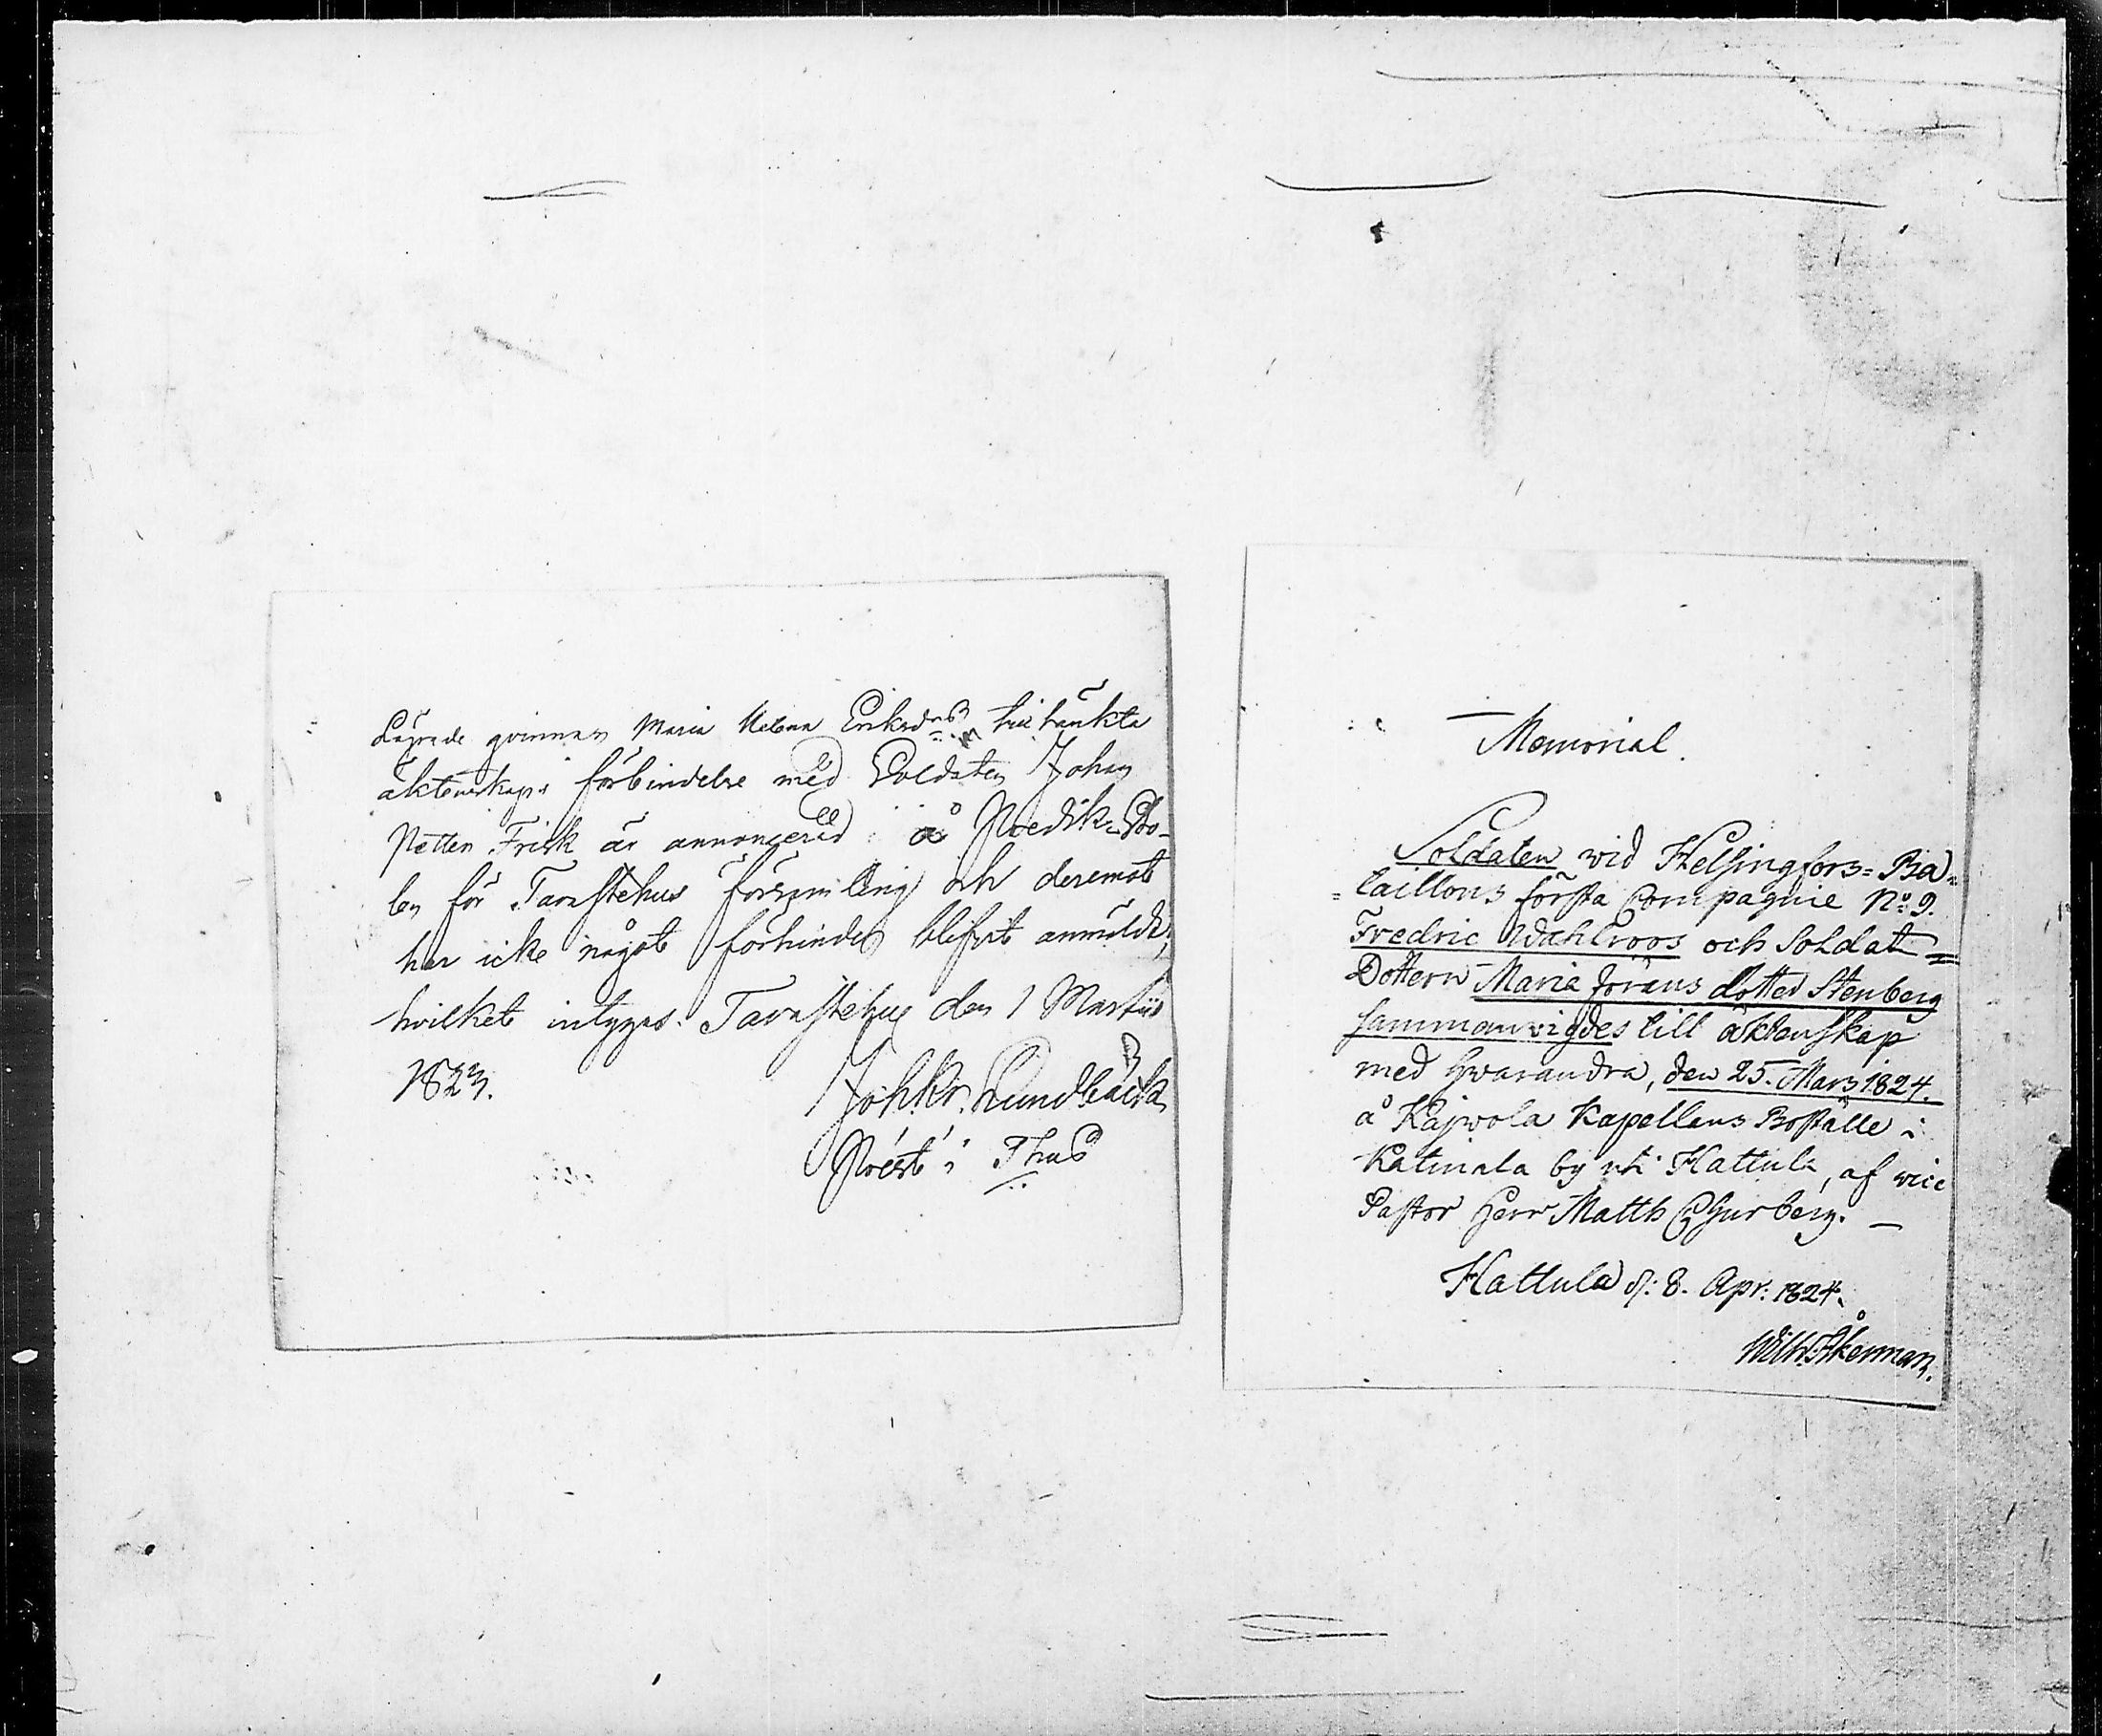 Lägrade qvinnan Maria Helena Eriksdrs tilltänkta
äktenskaps förbindelse med Soldaten Johan
Petter Frisk är annoncerad å Predik-Sto-
len för Tavastehus församling och deremot
har icke något förhinder blifvit anmäldt,
hvilket intygas. Tavastehus den 1 Martii
1823.
Joh. Kr. Lundbäck
Prest i Thus
Memorial.
Soldaten wid Helsingfors=Ba=
=taillons första Compagnie No: 9.
Fredric Wahlroos och Soldat=
Dottern Maria Jörans dotter Stenberg
sammanvigdes till äktenskap
med hwarandra, den 25. Mars 1824.
å Kajwola Kapellans Boställe i
Katinala by uti Hattula, af vice
Pastor Herr Matth Churberg. —
Hattula d: 8. Apr: 1824.
Wilh. Åkerman.